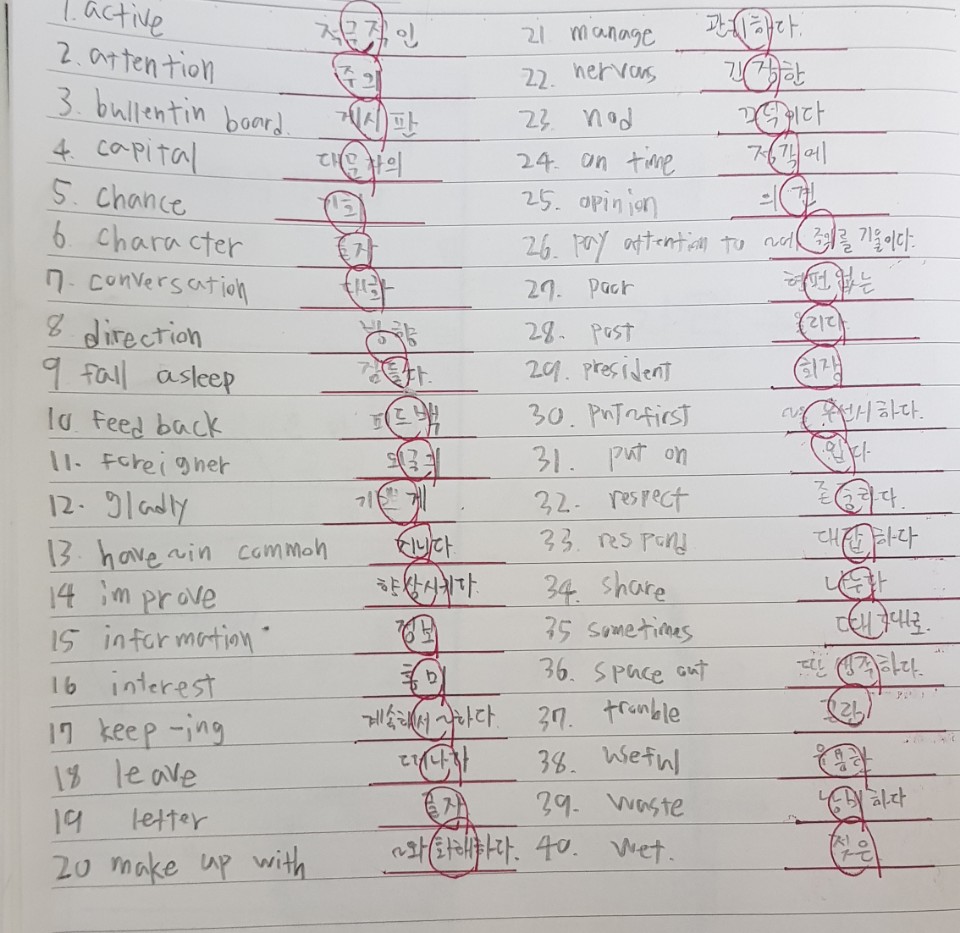 1. active 적극적인
2. attention 주의
3. bullentin board. 게시판
4. capital 대문자의
5. chance 기회
6. character 글자
7. conversation 대화
8 direction 방향
9 fall asleep 잠들다.
10 feed back 피드백
11. foreigner 외국인
12. gladly 기쁘게
13. have ~in common 지니다
14 improve 향상시키다.
15 information 정보
16 interest 흥미
17 keep -ing 계속해서 ~하다
18 leave 떠나다
19 letter 글자
20 make up with ~와 화해하다.
21 manage 관리하다.
22. nervous 긴장한
23. nod 끄덕이다
24. on time 정각에
25. opinion 의견
26. pay attention to ~에 주의를 기울이다.
27. poor 형편없는
28. post 올리다
29. president 회장
30. put~first ~을 우선시하다.
31. put on 입다
32. respect 존중하다.
33. respond 대답하다
34. share 나누다
35 sometimes 때때로.
36. space out 딴 생각하다.
37. tronble
38. useful 유용한
39. waste 낭비하다
40. wet. 젖은